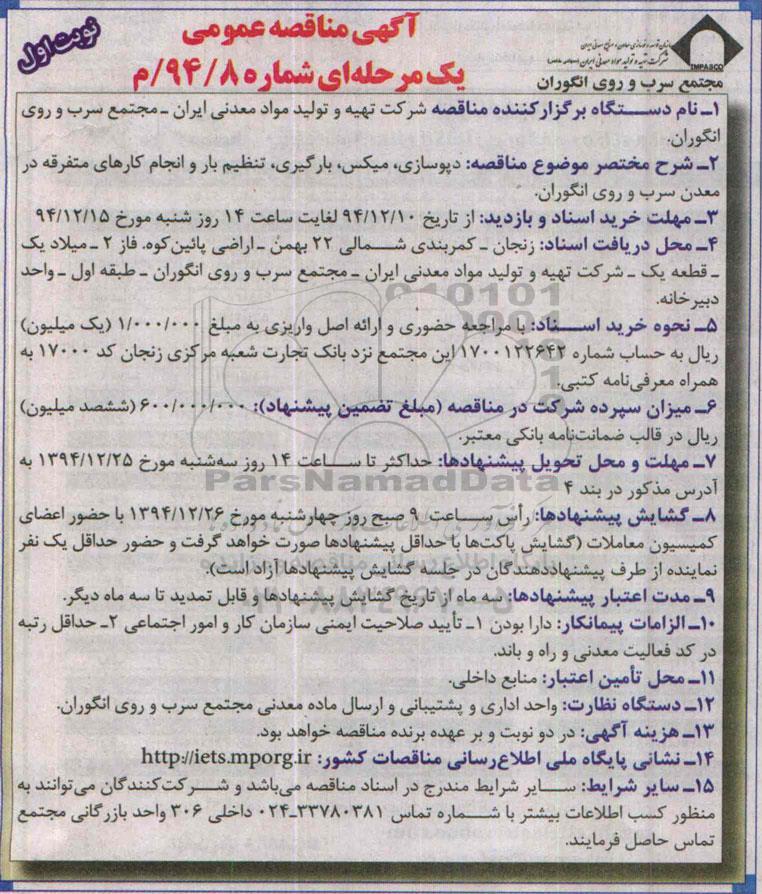 آگهی مناقصه عمومی
یک مرحله‌ای شماره ۹۴/۸/م
نوبت اول
IMPASCO
مجتمع سرب و روی انگوران
۱ـ نام دستگاه برگزارکننده مناقصه شرکت تهیه و تولید مواد معدنی ایران ـ مجتمع سرب و روی
انگوران.
۲ـ شرح مختصر موضوع مناقصه: دپوسازی، میکس، بارگیری، تنظیم بار و انجام کارهای متفرقه در
معدن سرب و روی انگوران.
۳ـ مهلت خرید اسناد و بازدید: از تاریخ ۹۴/۱۲/۱۰ لغایت ساعت ۱۴ روز شنبه مورخ ۹۴/۱۲/۱۵
۴ـ محل دریافت اسناد: زنجان ـ کمربندی شمالی ۲۲ بهمن ـ اراضی پائین‌کوه. فاز ۲ ـ میلاد یک
ـ قطعه یک ـ شرکت تهیه و تولید مواد معدنی ایران ـ مجتمع سرب و روی انگوران ـ طبقه اول ـ واحد
دبیرخانه.
۵ـ نحوه خرید اسناد: با مراجعه حضوری و ارائه اصل واریزی به مبلغ ۱/۰۰۰/۰۰۰ (یک میلیون)
ریال به حساب شماره ۱۷۰۰۱۲۲۶۴۲ این مجتمع نزد بانک تجارت شعبه مرکزی زنجان کد ۱۷۰۰۰ به
همراه معرفی‌نامه کتبی.
۶ـ میزان سپرده شرکت در مناقصه (مبلغ تضمین پیشنهاد): ۶۰۰/۰۰۰/۰۰۰ (ششصد میلیون)
ریال در قالب ضمانت‌نامه بانکی معتبر.
۷ـ مهلت و محل تحویل پیشنهادها: حداکثر تا ساعت ۱۴ روز سه‌شنبه مورخ ۱۳۹۴/۱۲/۲۵ به
آدرس مذکور در بند ۴
۸ـ گشایش پیشنهادها: رأس ساعت ۹ صبح روز چهارشنبه مورخ ۱۳۹۴/۱۲/۲۶ با حضور اعضای
کمیسیون معاملات (گشایش پاکت‌ها با حداقل پیشنهادها صورت خواهد گرفت و حضور حداقل یک نفر
نماینده از طرف پیشنهاددهندگان در جلسه گشایش پیشنهادها آزاد است).
۹ـ مدت اعتبار پیشنهادها: سه ماه از تاریخ گشایش پیشنهادها و قابل تمدید تا سه ماه دیگر.
۱۰ـ الزامات پیمانکار: دارا بودن ۱ـ تأیید صلاحیت ایمنی سازمان کار و امور اجتماعی ۲ـ حداقل رتبه
در کد فعالیت معدنی و راه و باند.
۱۱ـ محل تأمین اعتبار: منابع داخلی.
۱۲ـ دستگاه نظارت: واحد اداری و پشتیبانی و ارسال ماده معدنی مجتمع سرب و روی انگوران.
۱۳ـ هزینه آگهی: در دو نوبت و بر عهده برنده مناقصه خواهد بود.
۱۴ـ نشانی پایگاه ملی اطلاع‌رسانی مناقصات کشور: http://iets.mporg.ir
۱۵ـ سایر شرایط: سایر شرایط مندرج در اسناد مناقصه می‌باشد و شرکت‌کنندگان می‌توانند به
منظور کسب اطلاعات بیشتر با شماره تماس ۳۳۷۸۰۳۸۱-۰۲۴ داخلی ۳۰۶ واحد بازرگانی مجتمع
تماس حاصل فرمایند.
ParsNamadData